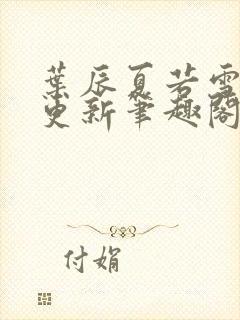 葉辰夏若雪
更新筆趣閣
付娟